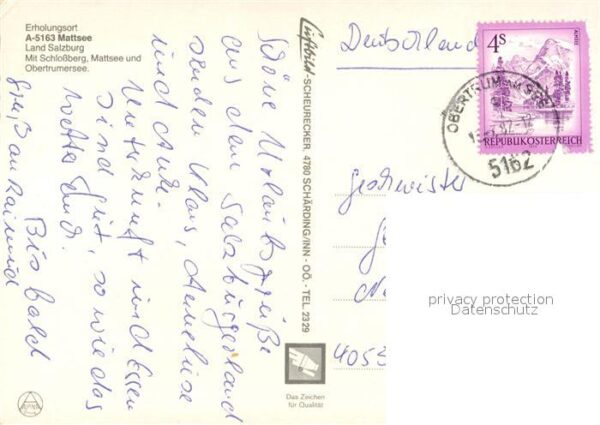 Erholungsort
A-5163 Mattsee
Land Salzburg
Mit Schloßberg, Mattsee und
Obertrumersee.
Schöne Urlaubsgrüße
aus dem Salzburgerland
senden Klaus, Anneliese
und Andi.
Unterkunft und Essen
sind gut, so wie das
Wetter auch.
Bis bald
Gruß an Raimund
Luftbild-SCHEURECKER, 4780 SCHÄRDING/INN - OÖ. - TEL. 2329
Das Zeichen
für Qualität
APNA
Deutschland
4S
AHORN
REPUBLIK ÖSTERREICH
OBERTRUM AM SEE
5162
Geschwister
4053
privacy protection
Datenschutz